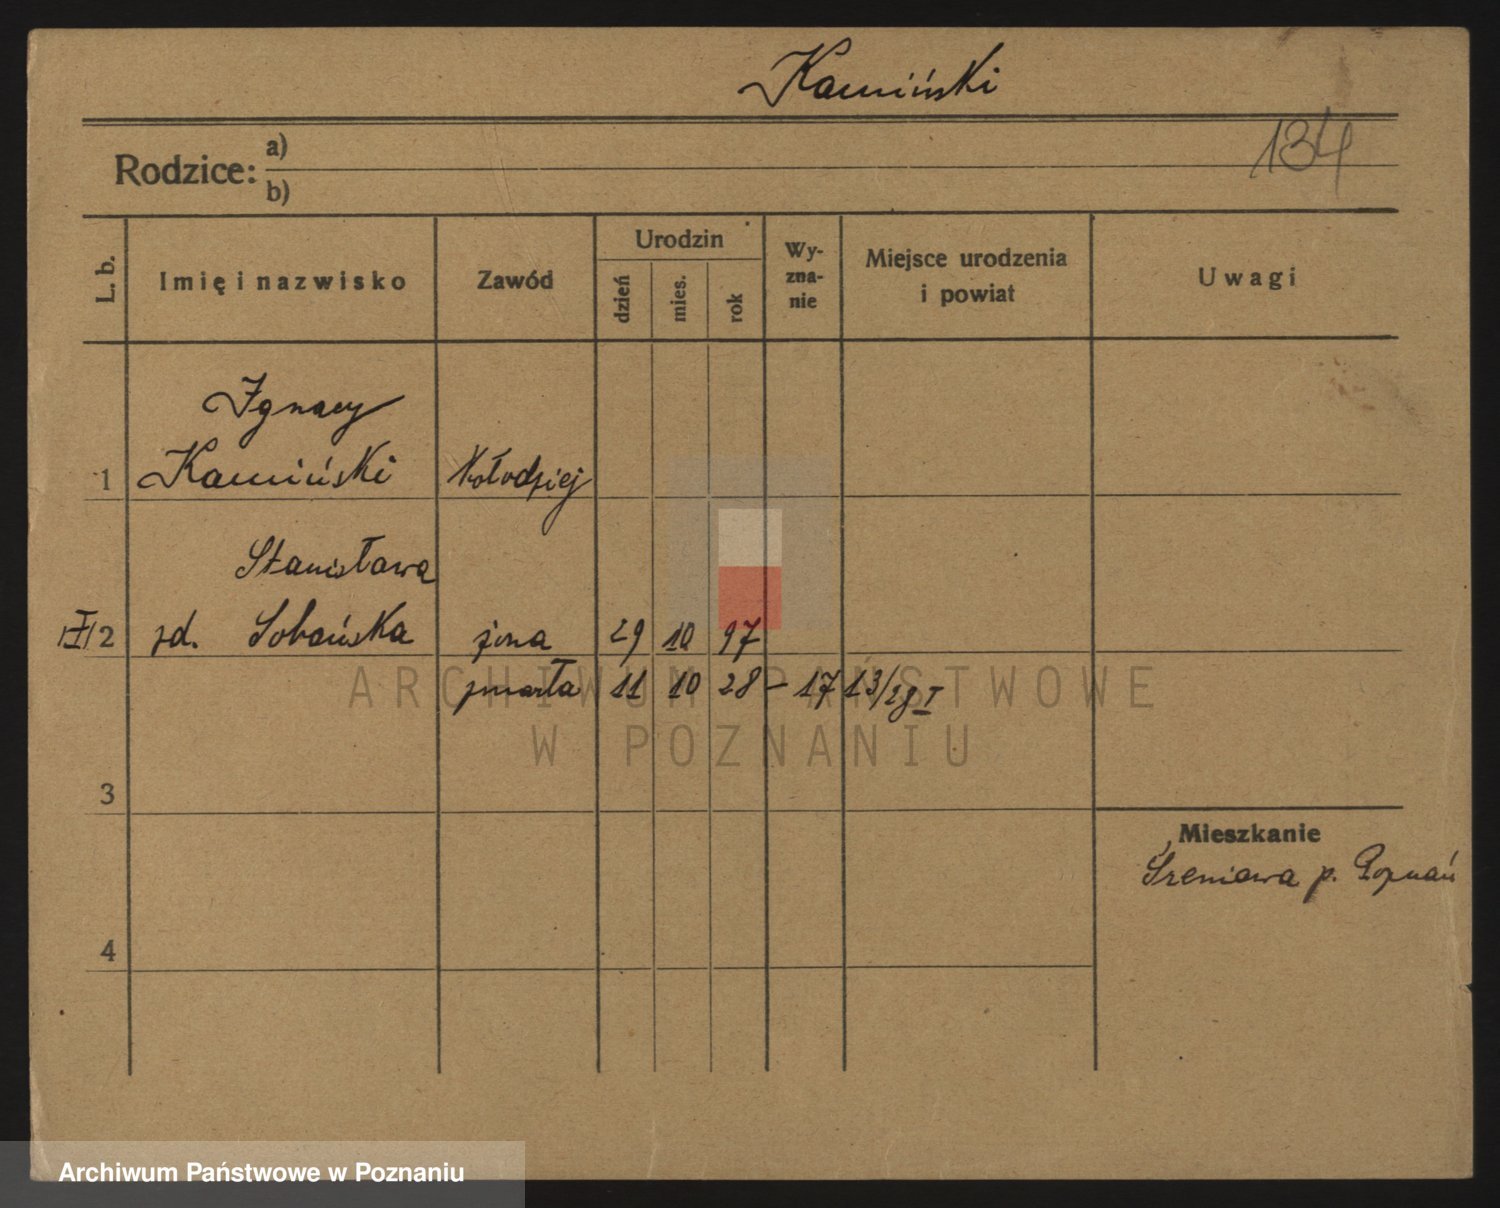 Kamiński
134
Rodzice: a)
b)
L. b.
Imię i nazwisko
Zawód
Urodzin
dzień
mies.
rok
Wy-
zna-
nie
Miejsce urodzenia
i powiat
Uwagi
Ignacy
1 Kamiński Kołodziej
Stanisława
2 zd. Sobańska żona 29 10 97
zmarła 11 10 28 – 17 13/28 I
3
Mieszkanie
Śreniawa p. Poznań
4
ARCHIWUM PAŃSTWOWE
W POZNANIU
Archiwum Państwowe w Poznaniu